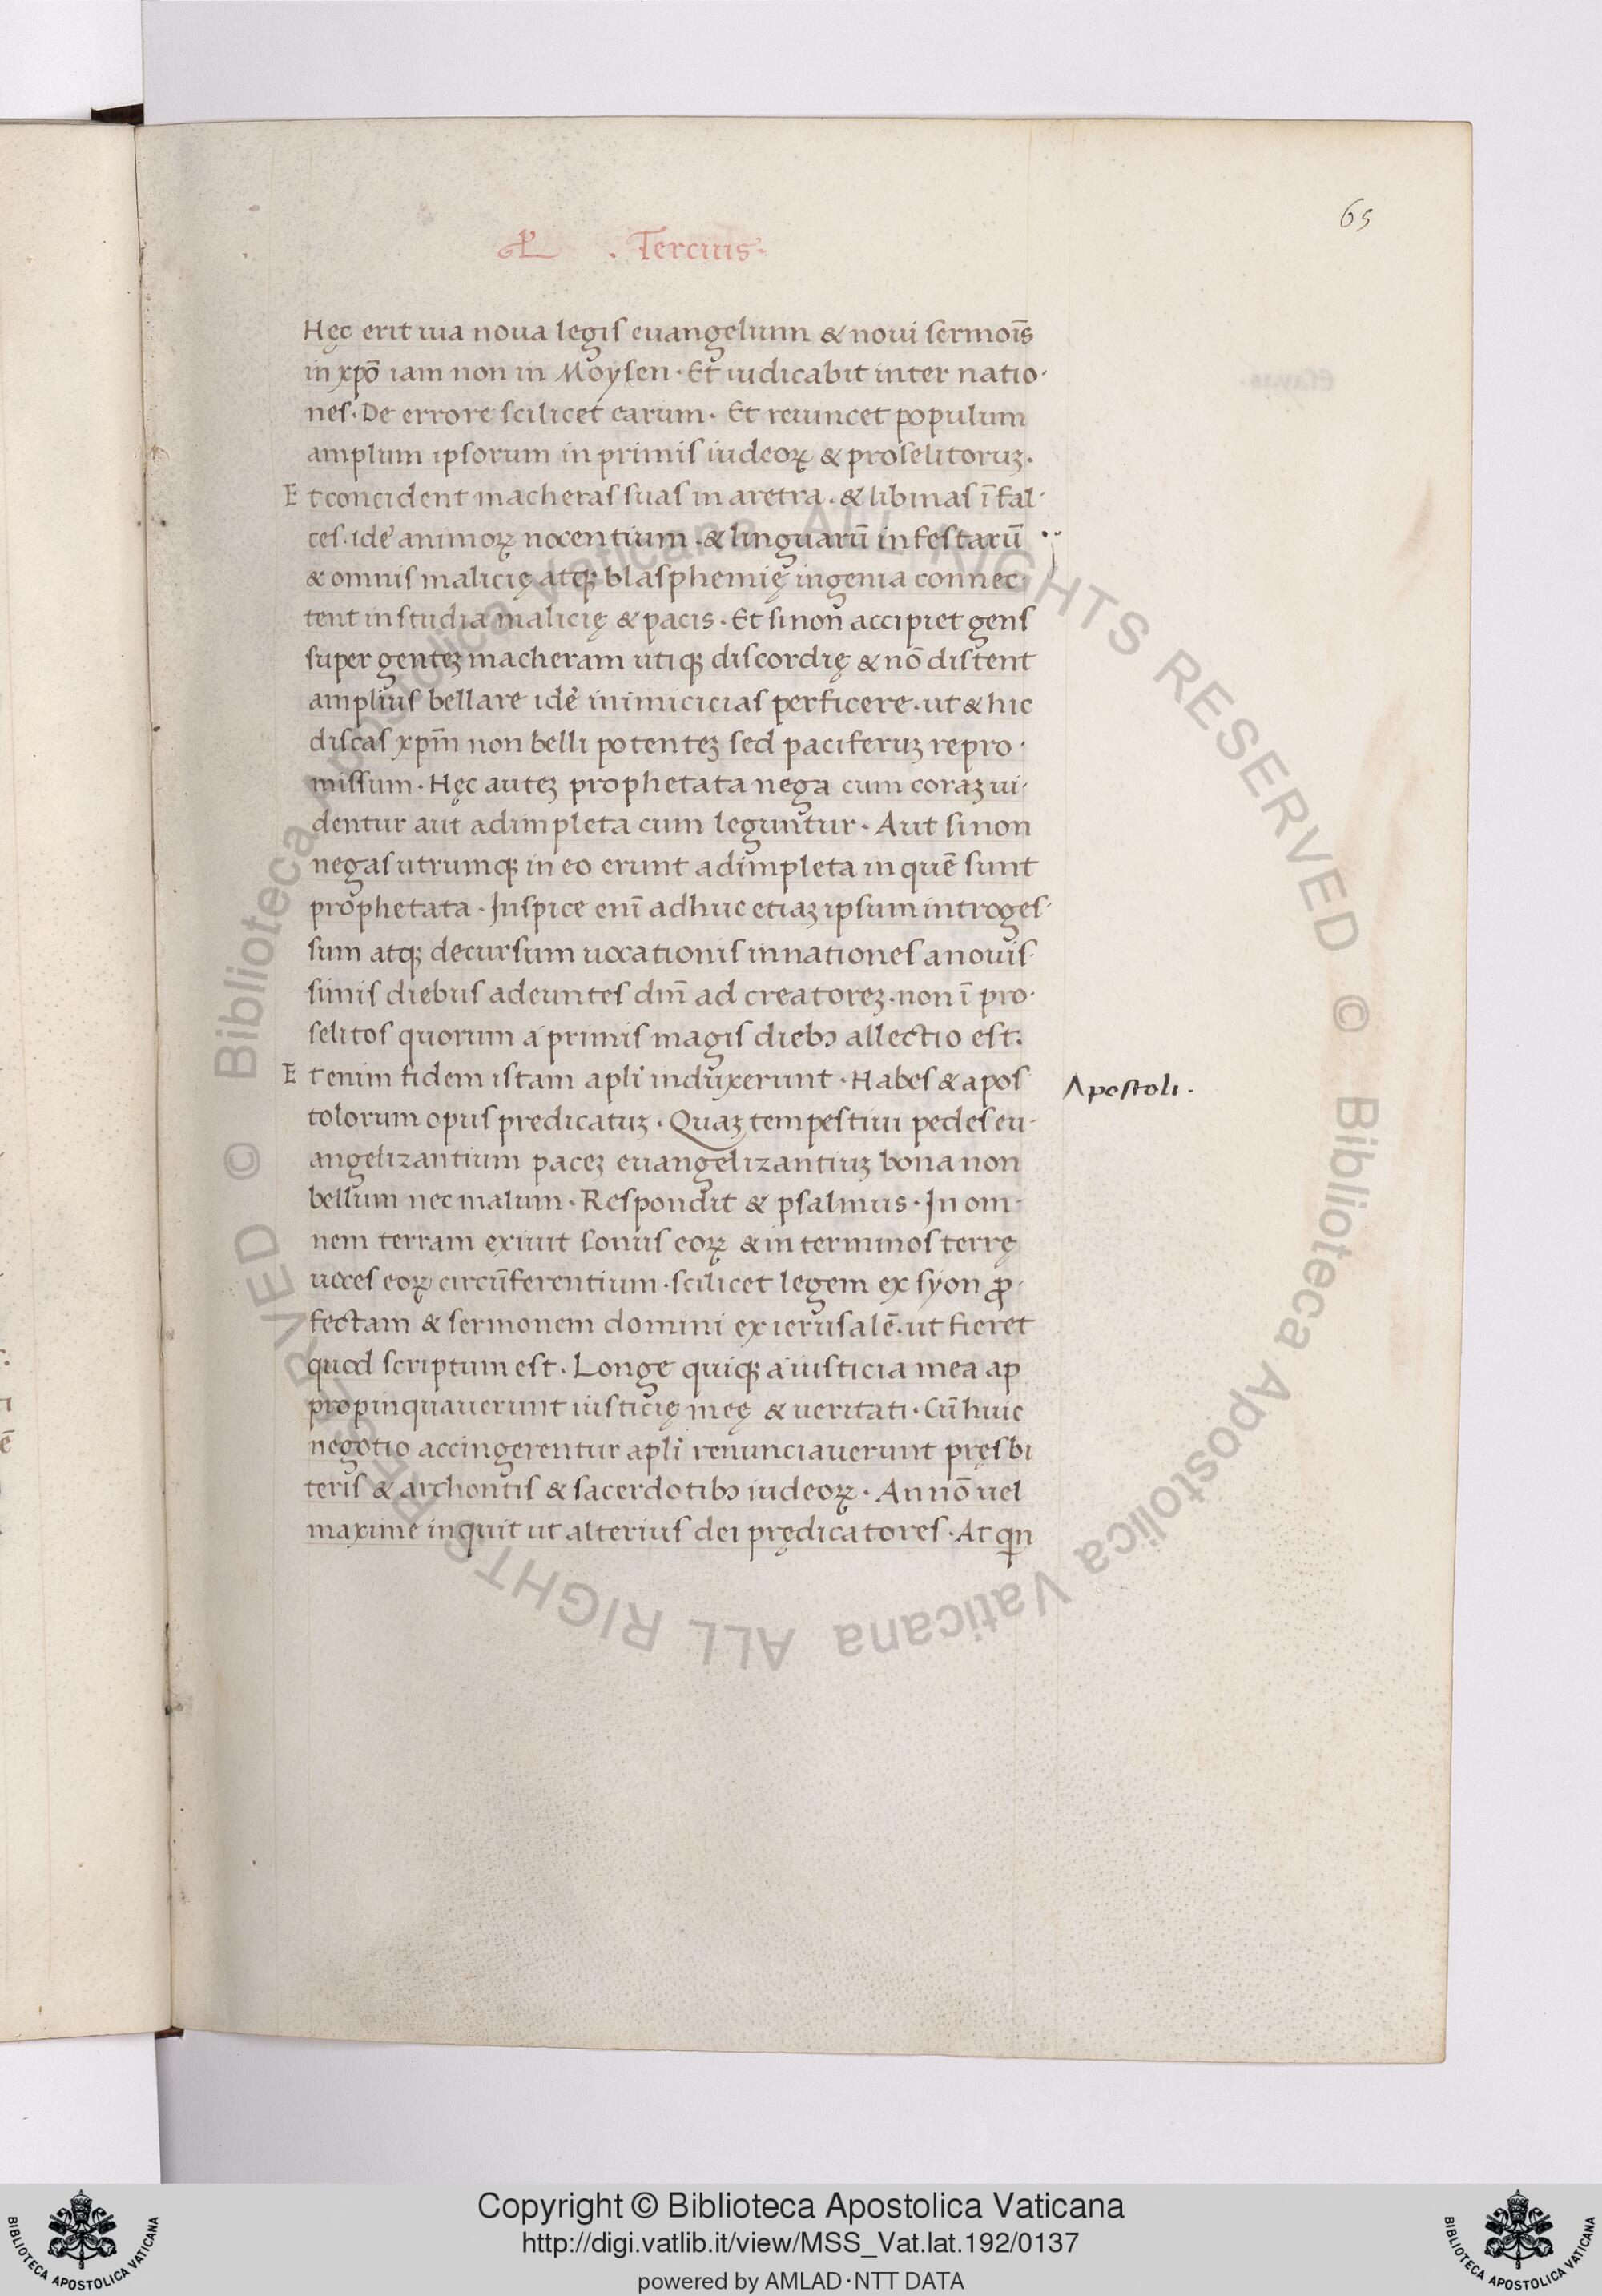 65
. Tercius.
Hęc erit uia noua legis euangelium & noui sermoīs
in xp̄o iam non in Moysen · Et iudicabit inter natio·
nes · De errore scilicet earum · Et reuincet populum
amplum ipsorum in primis iudeoꝝ & proselitoruꝫ.
Et concident macheras suas in aretra · & libinas ī fal·
ces · idē animoꝝ nocentium · & linguarū infestarū
& omnis malicię atqꝫ blasphemię ingenia connec
tent in studia malicię & pacis · Et si non accipiet gens
super genteꝫ macheram utiqꝫ discordię & nō distent
amplius bellare idē inimicicias perficere · ut & hic
discas xp̄m non belli potenteꝫ sed paciferuꝫ repro·
missum · Hęc auteꝫ prophetata nega cum coraꝫ ui·
dentur aut adimpleta cum leguntur · Aut si non
negas utrumqꝫ in eo erunt adimpleta in quē sunt
prophetata · Inspice eni̅ adhuc etiaꝫ ipsum introges·
sum atqꝫ decursum uocationis in nationes a nouis·
simis diebus adeuntes dm̄ ad creatoreꝫ · non ī pro·
selitos quorum a primis magis diebꝫ allectio est.
Etenim fidem istam apl̄i induxerunt · Habes & apos
tolorum opus predicatuꝫ · Quaꝫ tempestiui pedes eu·
angelizantium paceꝫ euangelizantiuꝫ bona non
bellum nec malum · Respondit & psalmus · In om·
nem terram exiuit sonus eoꝝ & in terminos terrę
uoces eoꝝ circūferentium · scilicet legem ex syon ꝓ·
fectam & sermonem domini ex ierusalē · ut fieret
quod scriptum est · Longe quiqꝫ a iusticia mea ap
propinquauerunt iusticię meę & ueritati · Cū huic
negotio accingerentur apl̄i renunciauerunt pręsbi
teris & archontis & sacerdotibꝫ iudeoꝝ · An nō uel
maxime inquit ut alterius dei prędicatores · At qn
Apostoli.
© Biblioteca Apostolica Vaticana ALL RIGHTS RESERVED © Biblioteca Apostolica Vaticana ALL RIGHTS RESERVED
Copyright © Biblioteca Apostolica Vaticana
http://digi.vatlib.it/view/MSS_Vat.lat.192/0137
powered by AMLAD·NTT DATA
BIBLIOTECA APOSTOLICA VATICANA
BIBLIOTECA APOSTOLICA VATICANA